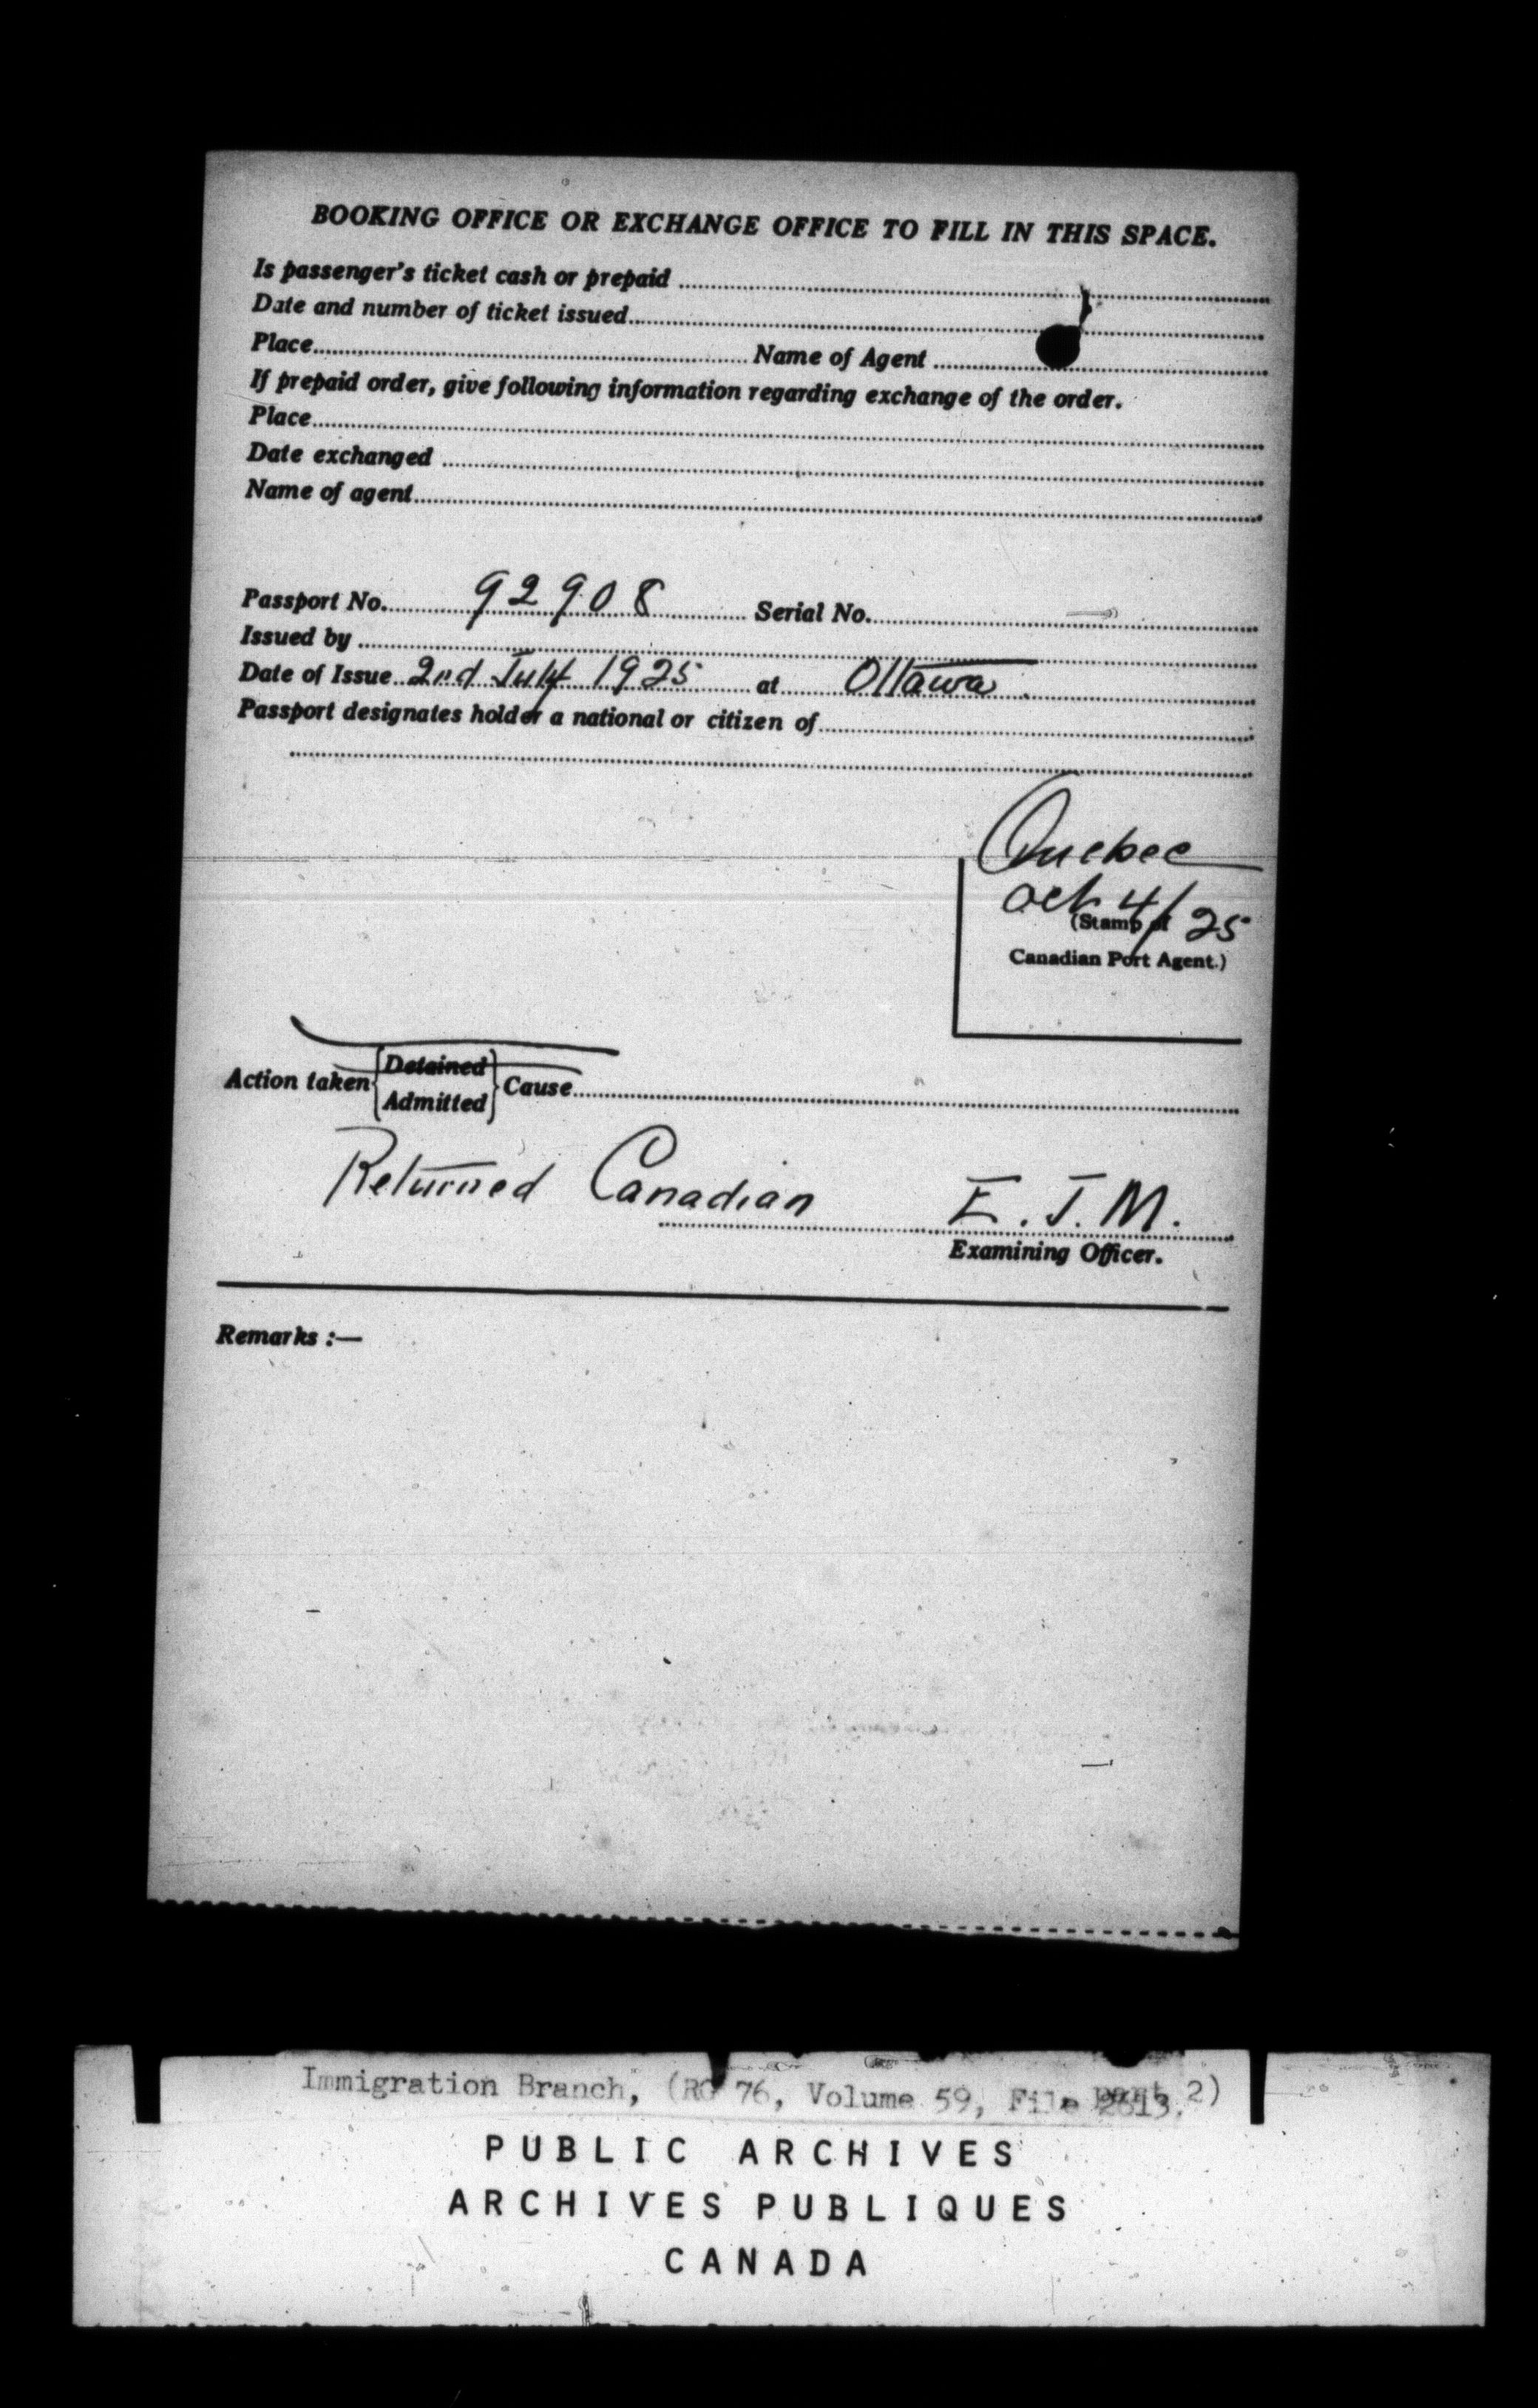 BOOKING OFFICE OR EXCHANGE OFFICE TO FILL IN THIS SPACE.
Is passenger's ticket cash or prepaid
Date and number of ticket issued
Place Name of Agent
If prepaid order, give following information regarding exchange of the order.
Place
Date exchanged
Name of agent
Passport No. 92908 Serial No.
Issued by
Date of Issue 2nd July 1925 at Ottawa.
Passport designates holder a national or citizen of
Quebec
Oct 4/25
(Stamp of
Canadian Port Agent.)
Action taken {Detained Admitted} Cause
Returned Canadian E. J. M.
Examining Officer.
Remarks :—
Immigration Branch, (RG 76, Volume 59, File 2613, part 2)
PUBLIC ARCHIVES
ARCHIVES PUBLIQUES
CANADA